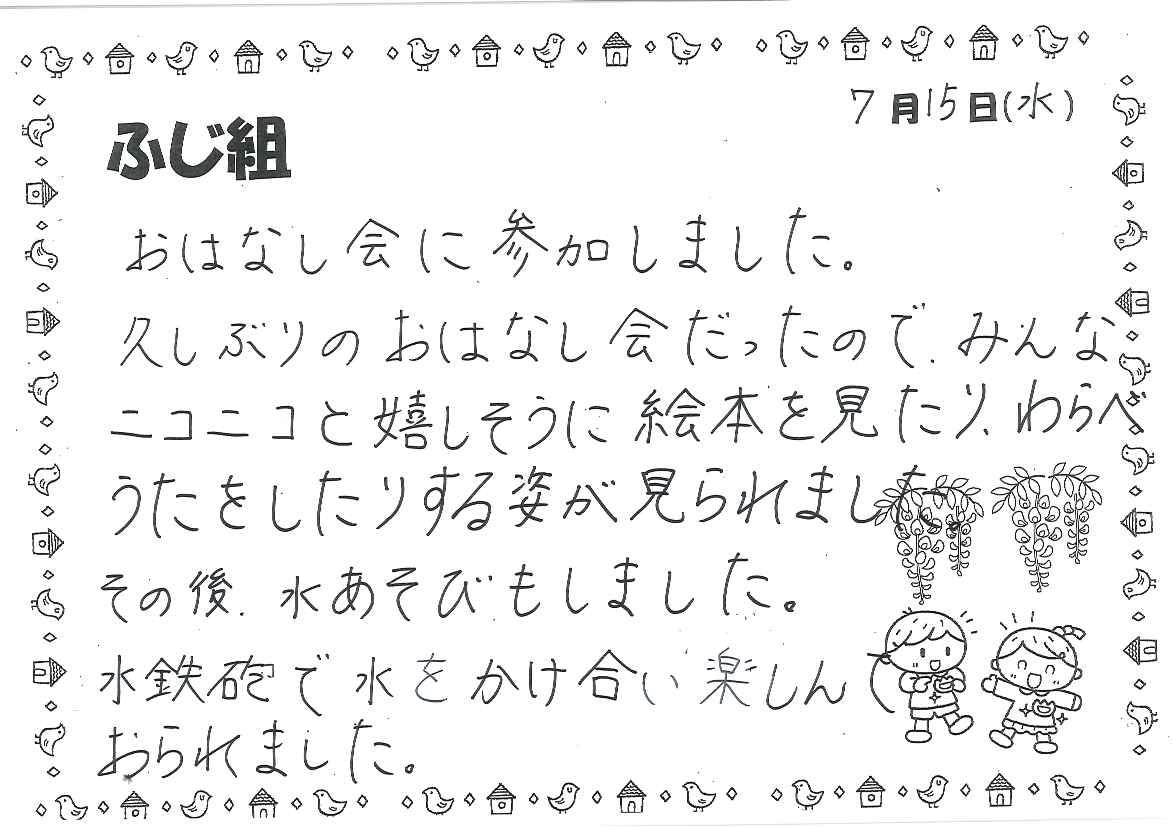 7月15日(水)
ふじ組
おはなし会に参加しました。
久しぶりのおはなし会だったので、みんな
ニコニコと嬉しそうに絵本を見たり、わらべ
うたをしたりする姿が見られました。
その後、水あそびもしました。
水鉄砲で水をかけ合い楽しんで
おられました。